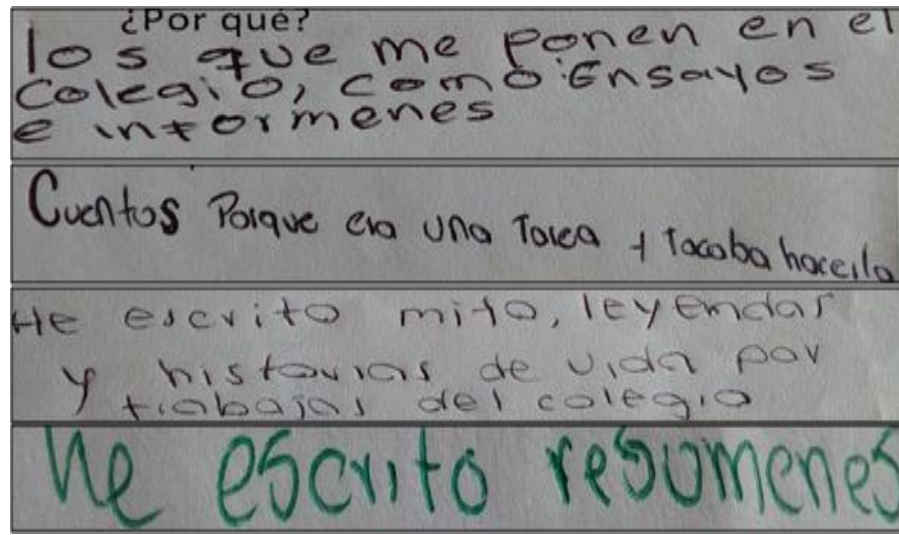 ¿Por qué?
los que me ponen en el
colegio, como Ensayos
e informenes
Cuentos Porque era una Tarea y Tocaba hacerla
He escrito mito, leyendas
y historias de vida por
trabajos del colegio
he escrito resumenes